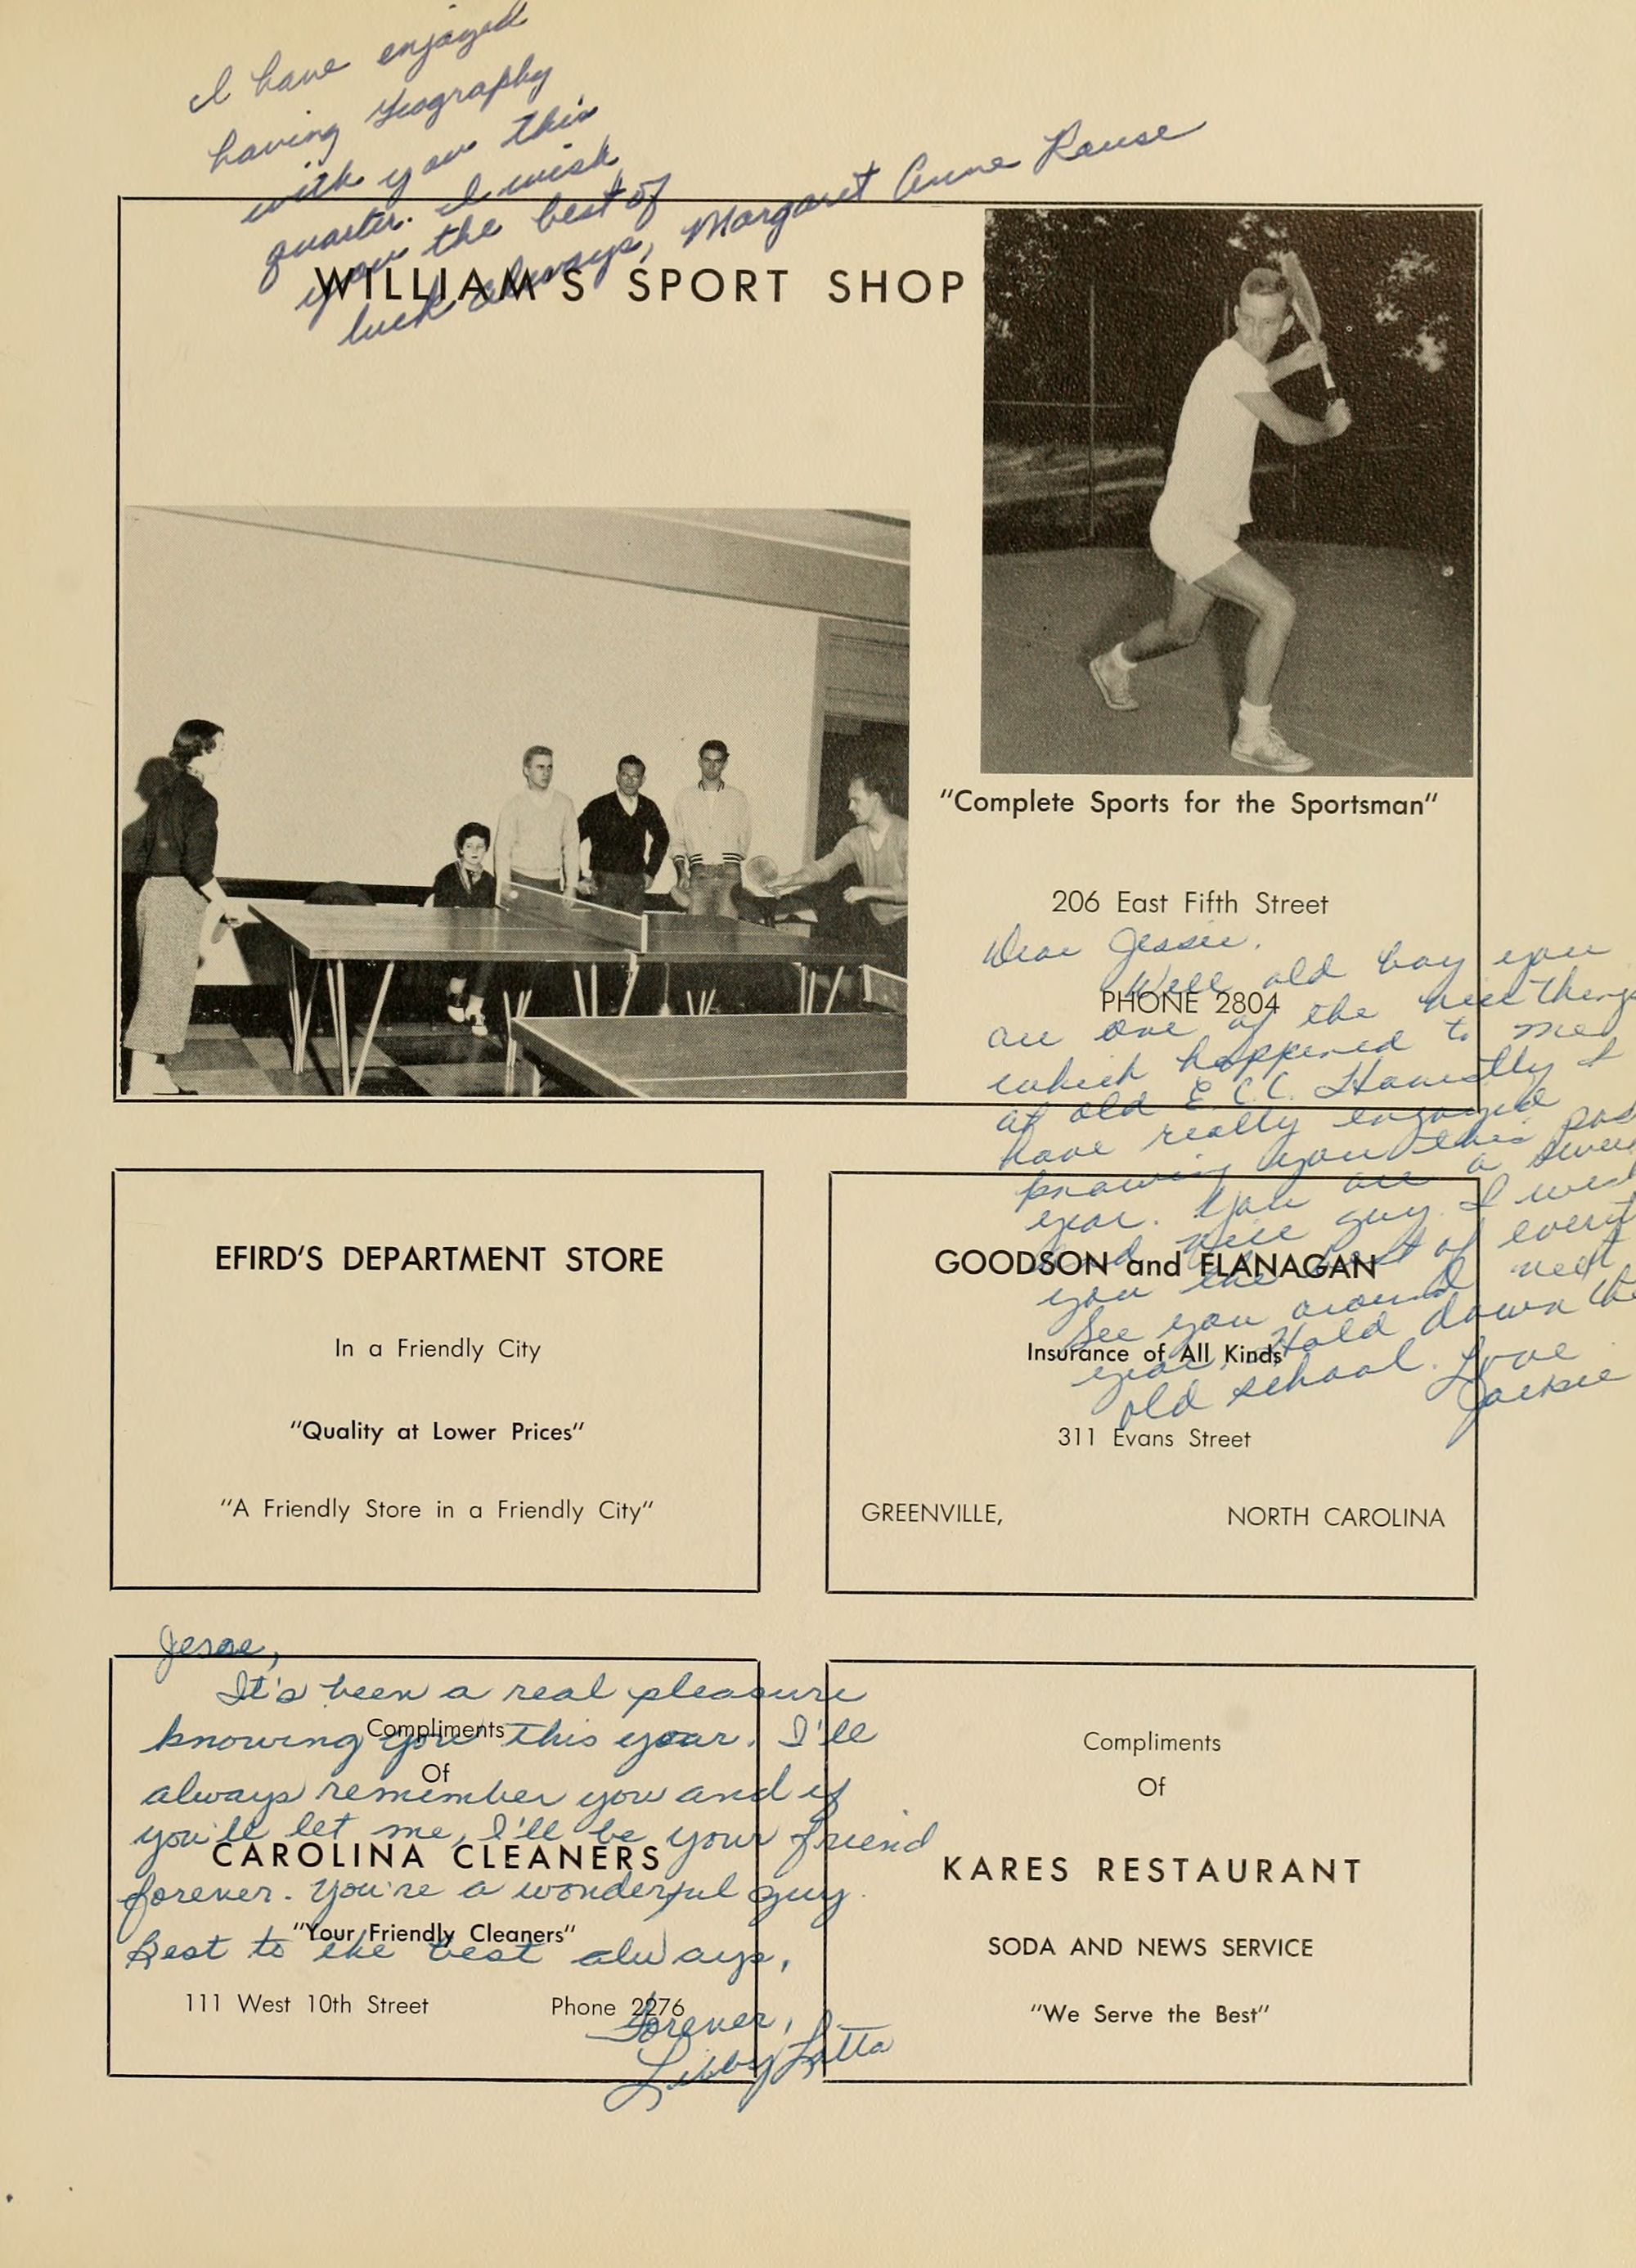 I have enjoyed
having Geography
with you this
quarter. I wish
you the best of
luck always, Margaret Anne Rouse
WILLIAM'S SPORT SHOP
"Complete Sports for the Sportsman"
206 East Fifth Street
PHONE 2804
Dear Jessie,
Well old boy you
are one of the nice things
which happened to me
at old E.C.C. Honestly I
have really enjoyed
knowing you this pas
year. You are a swee
and nice guy. I wis
you the best of every
See you around next
year. Hold down the
old school. Love
Jackie
EFIRD'S DEPARTMENT STORE
In a Friendly City
"Quality at Lower Prices"
"A Friendly Store in a Friendly City"
GOODSON and FLANAGAN
Insurance of All Kinds
311 Evans Street
GREENVILLE, NORTH CAROLINA
Jesse,
It's been a real pleasure
knowing you this year. I'll
always remember you and if
you'll let me, I'll be your friend
forever. You're a wonderful guy.
Best to the best always,
Forever,
Libby Latta
Compliments
Of
CAROLINA CLEANERS
"Your Friendly Cleaners"
111 West 10th Street Phone 2276
Compliments
Of
KARES RESTAURANT
SODA AND NEWS SERVICE
"We Serve the Best"